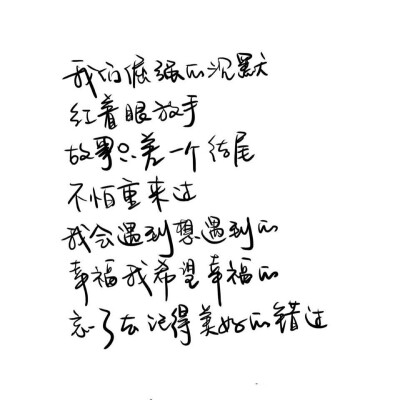 我们倔强的沉默
红着眼放手
故事只差一个结尾
不怕重来过
我会遇到想遇到的
幸福我希望幸福的
忘了去记得美好的错过